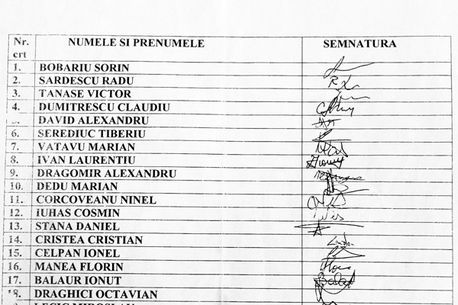 Nr. crt NUMELE SI PRENUMELE SEMNATURA
1. BOBARIU SORIN
2. SARDESCU RADU
3. TANASE VICTOR
4. DUMITRESCU CLAUDIU
DAVID ALEXANDRU
6. SEREDIUC TIBERIU
7. VATAVU MARIAN
8. IVAN LAURENTIU
9. DRAGOMIR ALEXANDRU
10. DEDU MARIAN
11. CORCOVEANU NINEL
12. IUHAS COSMIN
13. STANA DANIEL
14. CRISTEA CRISTIAN
15. CELPAN IONEL
16. MANEA FLORIN
17. BALAUR IONUT
18. DRAGHICI OCTAVIAN